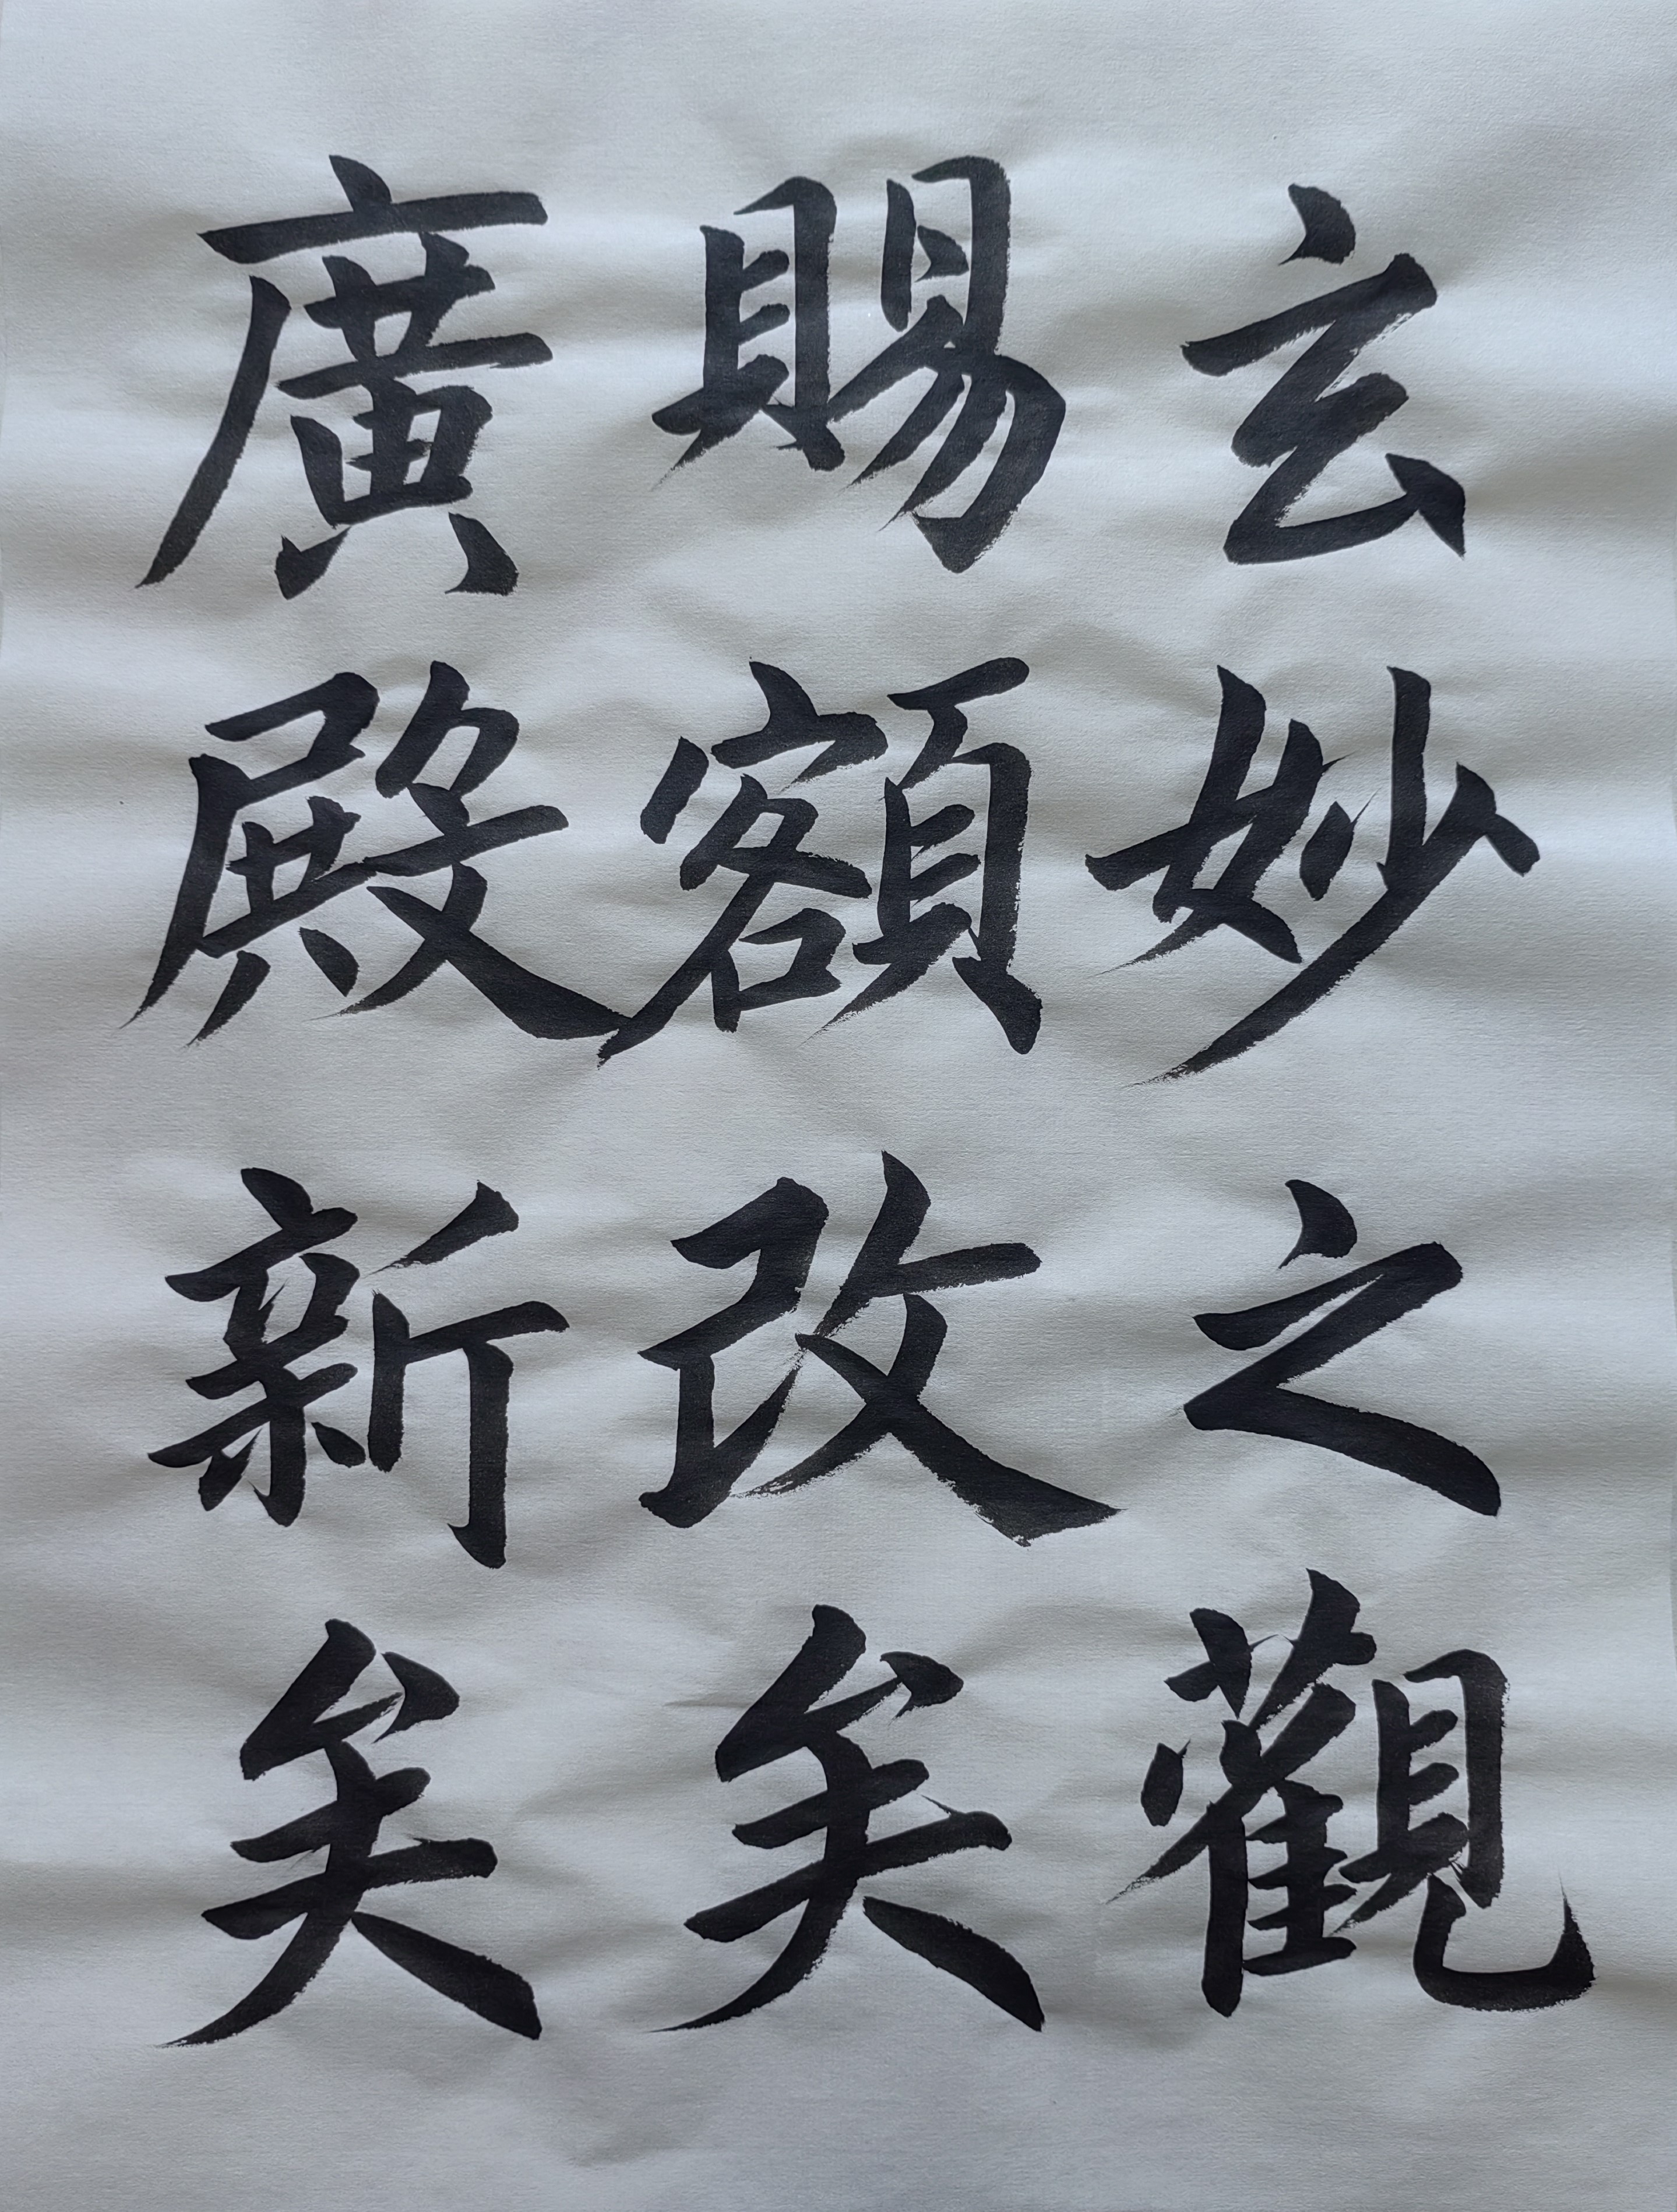 玄妙之觀
賜額改矣
廣殿新矣